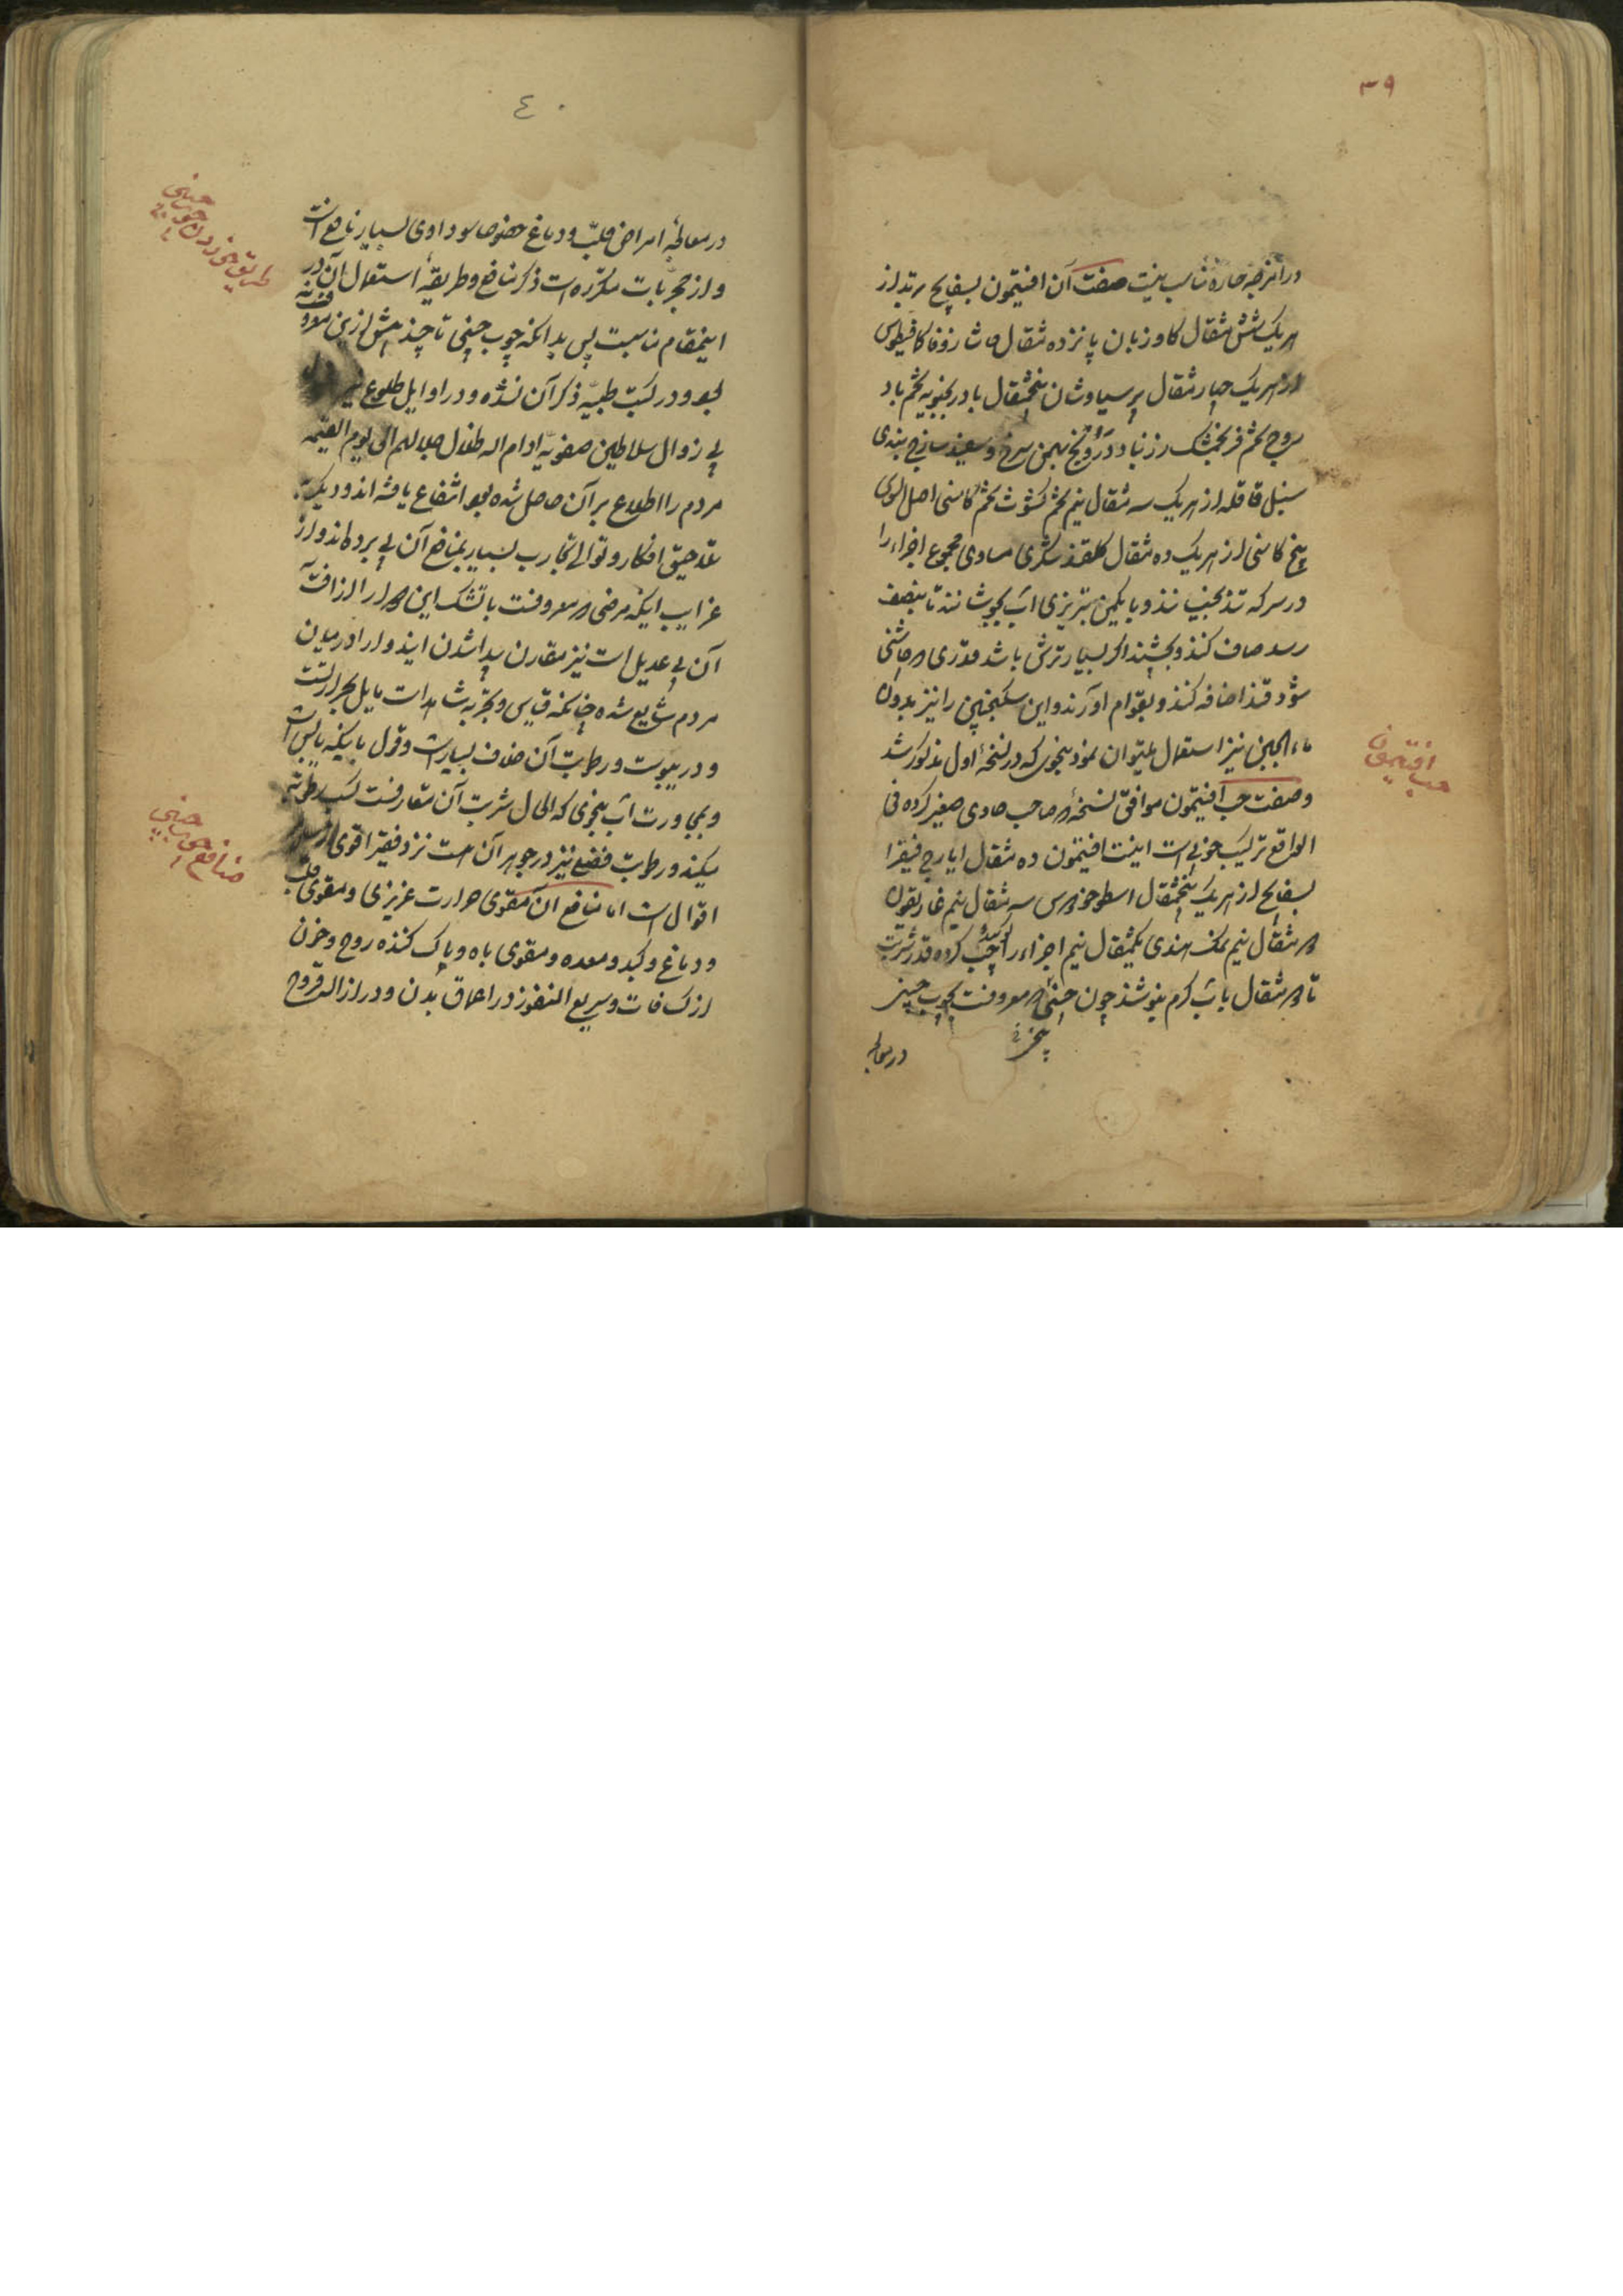 ۳۹
در امزجه حاره مناسب نیست صفت آن افتیمون بسفایج تربد از
هریک شش مثقال کاوزبان پانزده مثقال حاشا زوفا کمافیطوس
از هریک چهار مثقال پرسیاوشان پنجمثقال بادرنجبویه تخم باد
روج تخم فرنجمشک زرنباد درونج بهمن سرخ و سفید ساذج هندی
سنبل قاقله از هریک سه مثقال نیم تخم کشوث تخم کاسنی اصل السوس
بیخ کاسنی از هریک ده مثقال کلقند شکری مساوی مجموع اجزاء را
در سرکه تند بخیسانند و با یکمن تبریزی آب بجوشانند تا بنصف
رسد صاف کنند و بچشند اگر بسیار ترش باشد قدری که چاشنی
شود قند اضافه کنند و بقوام آورند و این سکنجبین را نیز بدون
ماء الجبن نیز استعمال میتوان نمود بنحوی که در نسخهٔ اول مذکور شد
حب افتیمون
وصفت حب افتیمون موافق نسخهٔ که صاحب حاوی صغیر کرده فی
الواقع ترکیب خوبی است اینست افتیمون ده مثقال ایارج فیقرا
بسفایج از هریک پنجمثقال اسطوخودوس سه مثقال نیم غاریقون
دو مثقال نیم نمک هندی یکمثقال نیم اجزاء را کوبیده حب کرده قدر شربت
تا دو مثقال باب کرم بنوشند چون چینی که معروفست بچوب چینی
در معالجه
٤٠
در معالجهٔ امراض قلب و دماغ خصوصا سوداوی بسیار نافع است
طریق خوردن چوب چینی
و از مجربات مکرره است ذکر منافع و طریقهٔ استعمال آن در
اینمقام مناسبت پس بدانکه چوب چینی تا چند پیش ازین معروف نه
بود و در کتب طبیه ذکر آن نشده و در اوایل طلوع نیر دولت
بی زوال سلاطین صفویه ادام الله ظلال جلالهم الی یوم القیمه
مردم را اطلاع بر آن حاصل شده بود انتفاع یافته اند و دیگر
بتدقیق افکار و توالی تجارب بسیار بمنافع آن پی برده اند و از
غرایب اینکه مرضی که معروفست باتشک این دوا را از آفت
آن بی عدیل است نیز مقارن پیدا شدن این دوا در میان
مردم شایع شده چنانکه قیاس و تجربه شاهد است مایل بحرارتست
و در یبوست و رطوبت آن خلاف بسیار است و قول باینکه یابس است
و بمجاورت آب بنحوی که الحال شربت آن متعارفست کسب رطوبت
منافع چوب چینی
میکند و رطوبت فضلیه نیز در جوهر آن هست نزد فقیر اقوی از سایر
اقوال است اما منافع آن مقوی حرارت غریزی و مقوی قلب
و دماغ و کبد و معده و مقوی باه و پاک کننده روح و خون
از کثافات و سریع النفوذ در اعماق بدن و در ازاله قروح